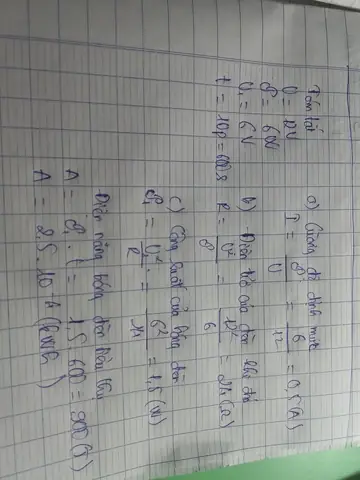 Tóm tắt
U = 12V
℘ = 6W
U₁ = 6V
t = 10p = 600s
a) Cường độ định mức
I = ℘/U = 6/12 = 0,5 (A)
b) Điện trở của đèn khi đó
R = U²/℘ = 12²/6 = 24 (Ω)
c) Công suất của bóng đèn
℘₁ = U₁²/R = 6²/24 = 1,5 (W)
Điện năng bóng đèn tiêu thụ
A = ℘₁ . t = 1,5 . 600 = 900 (J)
A = 2,5 . 10⁻⁴ (kWh)